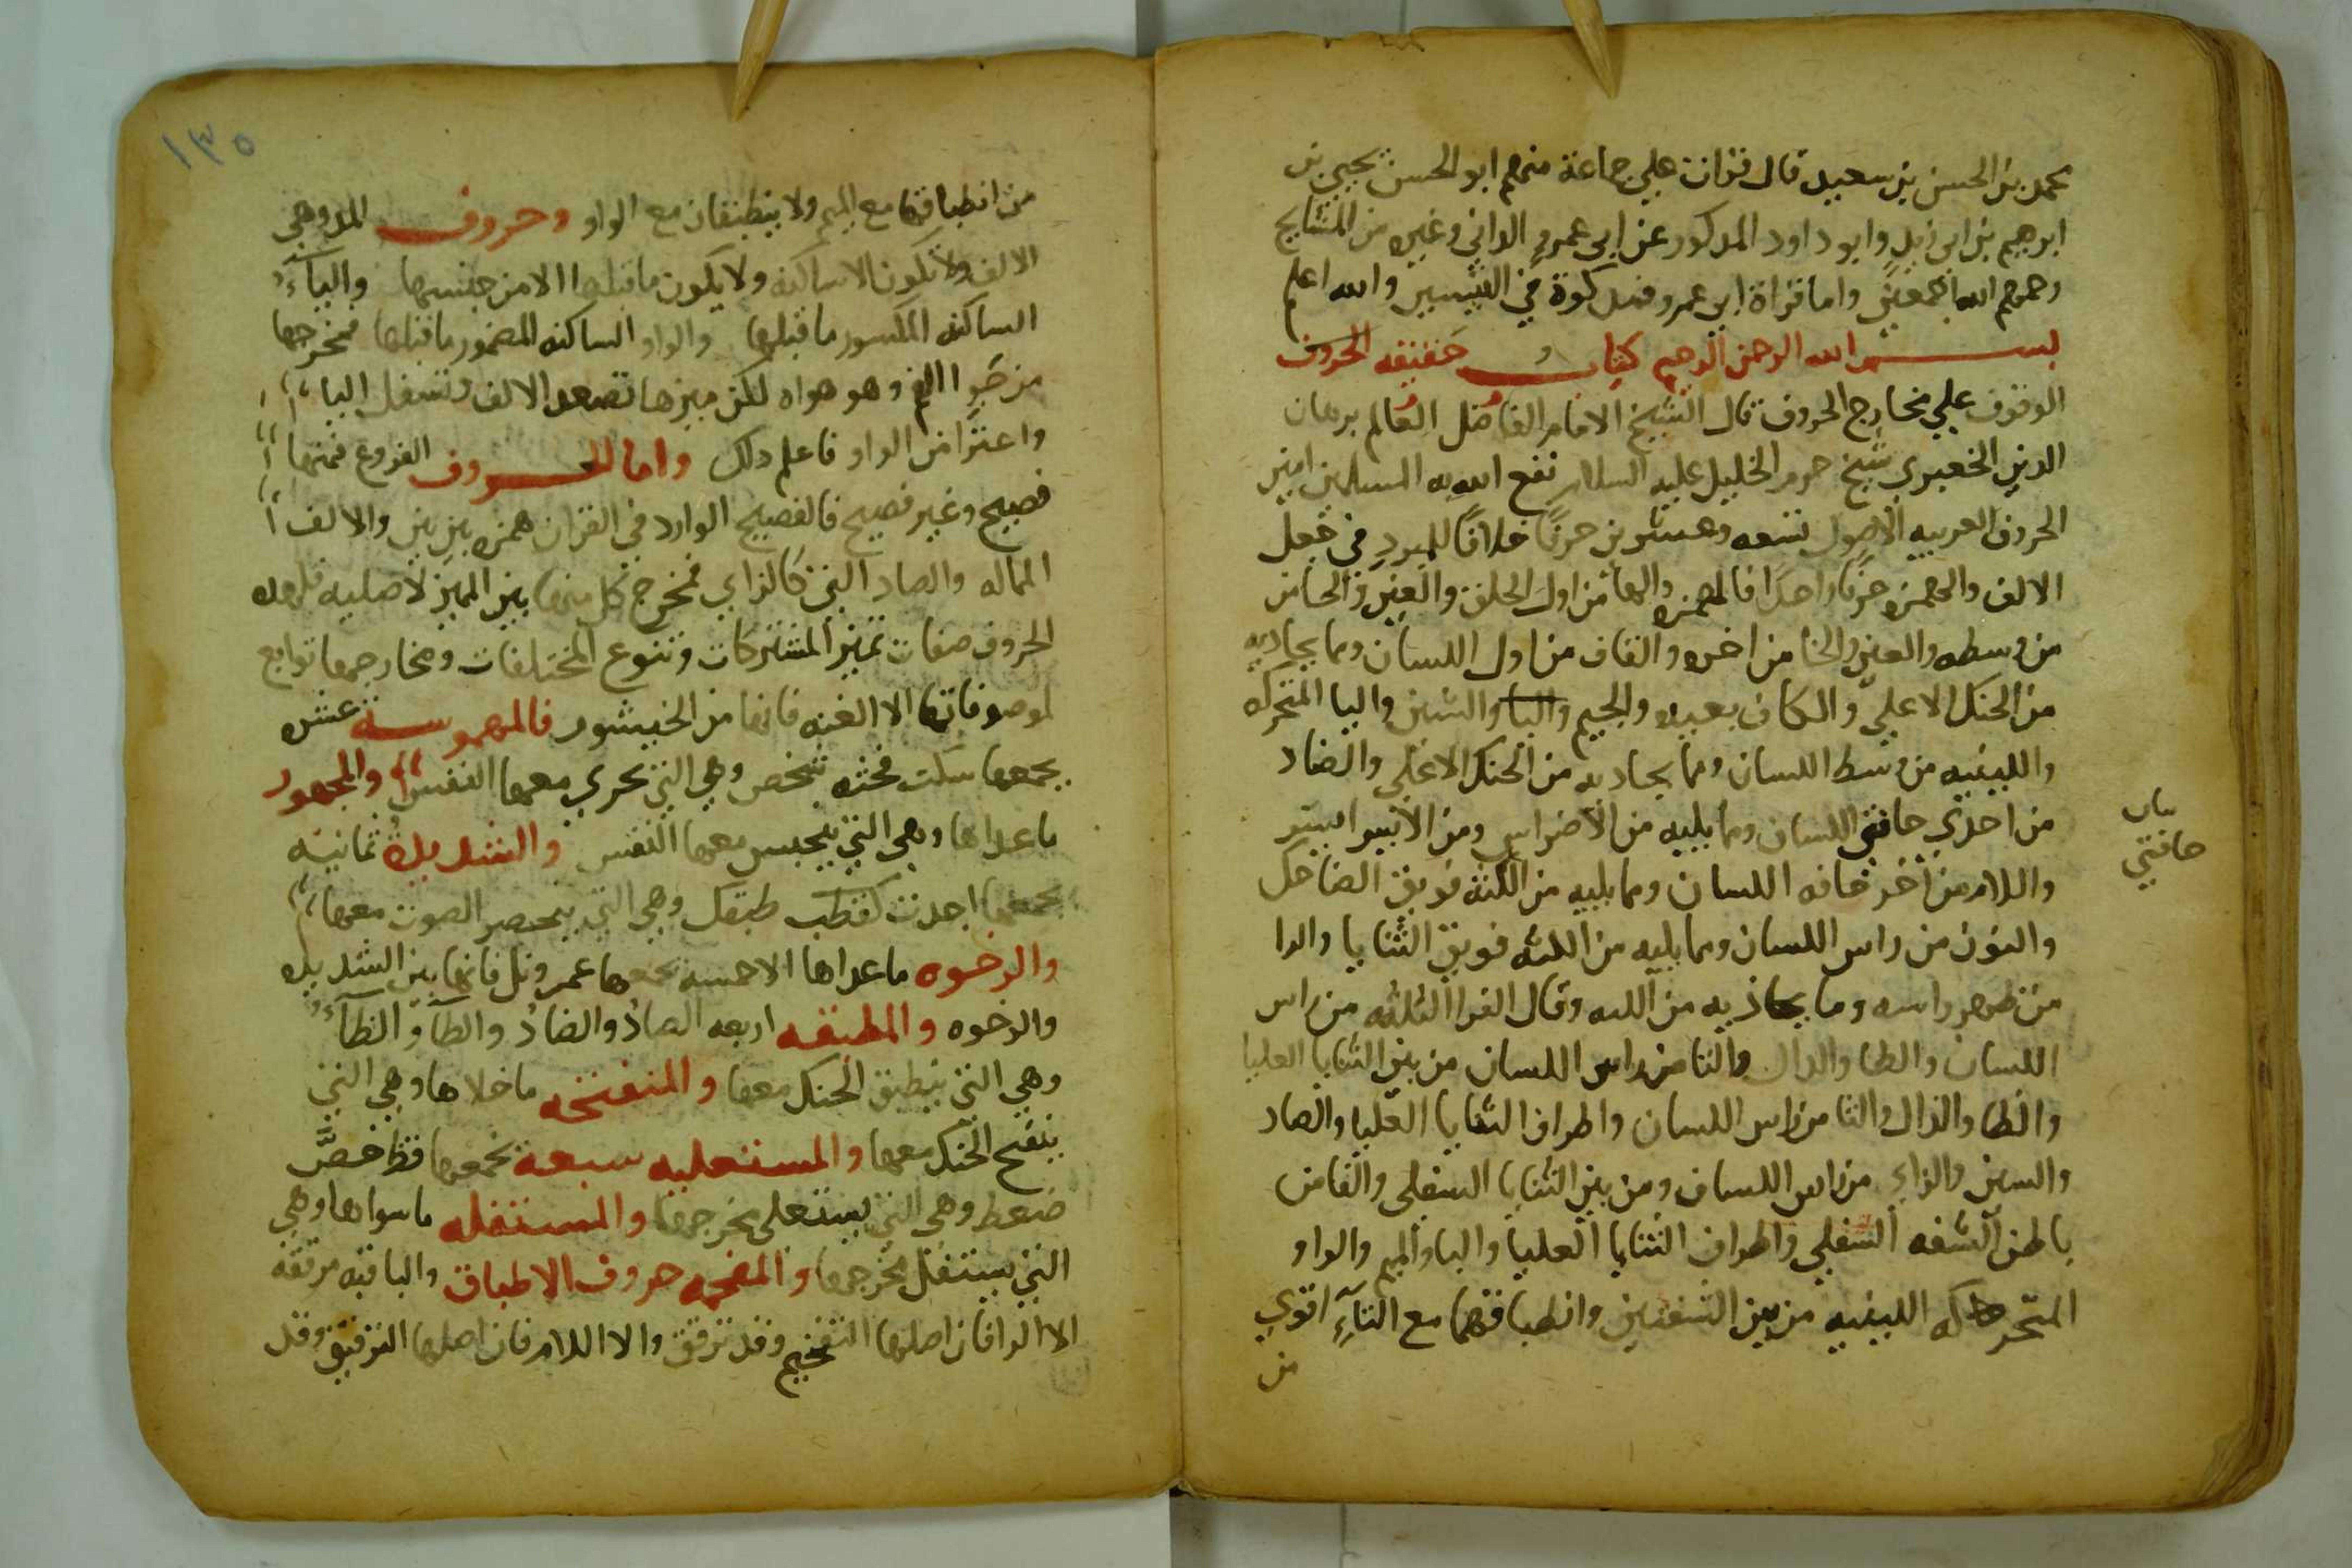 محمد بن الحسن بن سعيد قال قرات علي جماعة منهم ابو الحسن يحيي بن
ابرهيم بن ابي زيد وابو داود المذكور عن ابي عمرو الداني وغيره من المشايخ
رحمهم الله اجمعين واما قراة ابي عمرو فمذكورة في التيسير والله اعلم
بسم الله الرحمن الرحيم كتاب حقيقه الحروف
الوقوف علي مخارج الحروف قال الشيخ الامام الفاضل العالم برهان
الدين الجعبري شيخ حرم الخليل عليه السلام نفع الله به المسلمين امين
الحروف العربيه الاصول تسعه وعشرون حرفا خلافا للمبرد في جعل
الالف والهمزه حرفا واحدا فالهمزه والها من اول الحلق والعين والحا من
من وسطه والغين والخا من اخره والقاف من اول اللسان ومما يحاذيه
من الحنك الاعلي والكاف بعيده والجيم واليا والشين واليا المتحركه
واللينيه من وسط اللسان ومما يحاديه من الحنك الاعلي والضاد
من احدي حافتي اللسان ومما يليه من الاضراس ومن الايسر ايسر
بيان
حافتي
واللام من اخر حافه اللسان ومما يليه من اللثه فويق الضاحك
والنون من راس اللسان ومما يليه من اللثه فويق الثنايا والرا
من ظهر راسه وما يحاذيه من اللثه وقال الفرا الثلثه من راس
اللسان والطا والدال والتا من راس اللسان من بين الثنايا العليا
والظا والذال والثا من راس اللسان واطراف الثنايا العليا والصاد
والسين والزاي من راس اللسان ومن بين الثنايا السفلي والفا من
باطن الشفه السفلي واطراف الثنايا العليا والبا والميم والواو
المتحركه اللينيه من بين الشفتين وانطباقهما مع البآء اقوي
من
١٣٥
من انطباقها مع الميم ولا ينطبقان مع الواو وحروف المد وهي
الالف ولا تكون الا ساكنه ولا يكون ما قبلها الا من جنسها واليآء
الساكنه المكسور ما قبلها والواو الساكنه المضموم ما قبلها فمخرجها
من جو الفم وهو هواه لكن ميزها تصعد الالف وتسفل اليا
واعتراض الواو فاعلم ذلك واما الحروف الفروع فمنها
فصيح وغير فصيح فالفصيح الوارد في القران همزه بين بين والالف
المماله والصاد التي كالزاي فمخرج كل منها بين المميز لاصليه فلهذه
الحروف صفات تميز المشتركات وتنوع المختلفات ومخارجها توابع
لموصوفاتها الا الغنه فانها من الخيشوم فالمهموسه عشره
يجمعها سكت فحثه شخص وهي التي تجري معها النفس والمجهور
ما عداها وهي التي ينحبس معها النفس والشديدة ثمانية
يجمعها اجدت كقطب طبقك وهي التي ينحصر الصوت معها
والرخوه ما عداها الا خمسه يجمعها عمر ونل فانها بين الشديده
والرخوه والمطبقه اربعه الصاد والضاد والطآ والظآء
وهي التي ينطبق الحنك معها والمنفتحه ما خلاها وهي التي
ينفتح الحنك معها والمستعليه سبعة يجمعها قظ خصَّ
ضغط وهي التي يستعلي مخرجها والمستفله ما سواها وهي
التي يستفل مخرجها والمفخمه حروف الاطباق والباقيه مرققه
الا الرا فان اصلها التفخيم وقد ترقق والا اللام فان اصلها الترقيق وقد